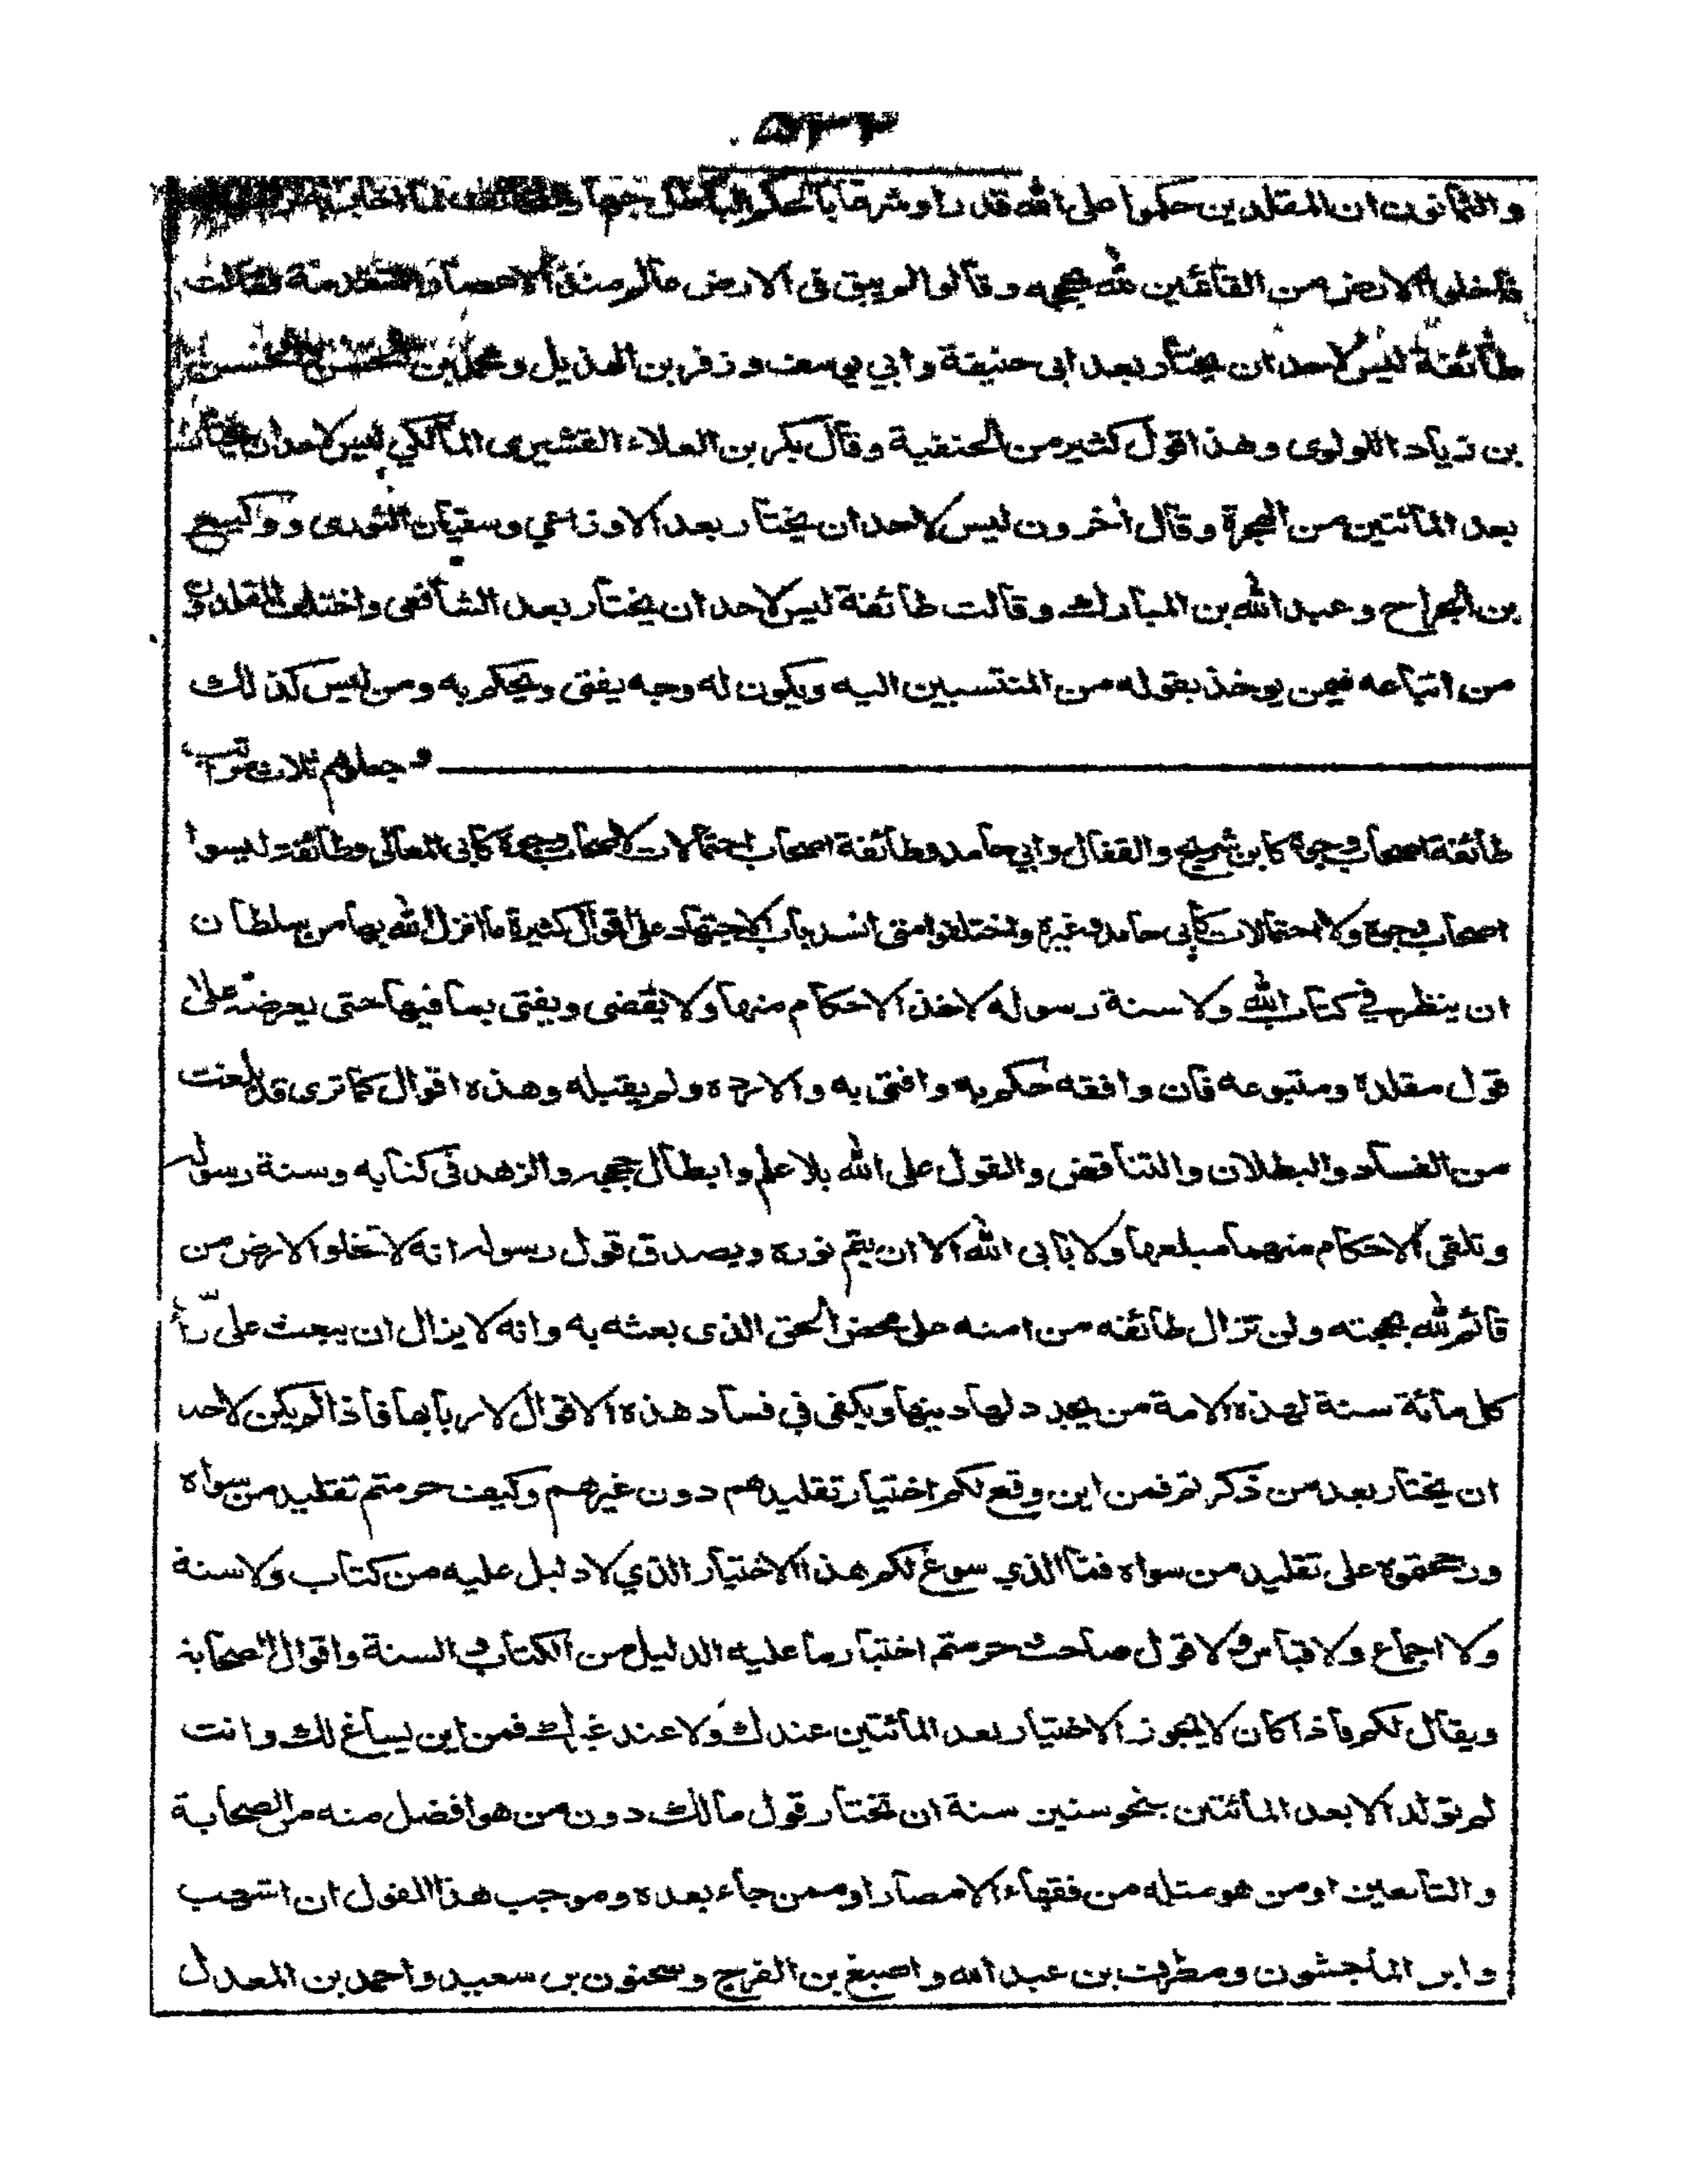 والثمانون ان المقلدين حكموا على الله قدرا وشرعا بالحكم الباطل جهارا
فاخلوا الارض من القائمين لله بحججه وقالوا لم يبق فى الارض عالم منذ الاعصار المتقدمة فقالت
طائفة ليس لاحد ان يختار بعد ابى حنيفة وابي يوسف وزفر بن الهذيل ومحمد بن الحسن والحسن
بن زياد اللولوى وهذا قول كثير من الحنفية وقال بكر بن العلاء القشيرى المالكي ليس لاحد ان يختار
بعد المائتين من الهجرة وقال أخرون ليس لاحد ان يختار بعد الاوزاعي وسفيان الثورى ووكيع
بن الجراح وعبد الله بن المبارك وقالت طائفة ليس لاحد ان يختار بعد الشافعى واختلف المقلدون
من اتباعه فيمن يوخذ بقوله من المنتسبين اليه ويكون له وجه يفتى ويحكم به ومن ليس كذلك
وجعلوهم ثلاث مراتب
طائفة اصحاب وجوه كابن شريح والقفال وابي حامد وطائفة اصحاب احتمالات لا اصحاب وجوه كابى المعالى وطائفة ليسوا
اصحاب وجوه ولا احتمالات كابى حامد وغيره واختلفوا متى انسد باب الاجتهاد على اقوال كثيرة ما انزل الله بها من سلطان
ان ينظر في كتاب الله ولا سنة رسوله لاخذ الاحكام منها ولا يقضى ويفتى بما فيها حتى يعرضه على
قول مقلده ومتبوعه فان وافقه حكم به وافتى به والا رده ولم يقبله وهذه اقوال كما ترى قد بلغت
من الفساد والبطلان والتناقض والقول على الله بلا علم وابطال حججه والزهد فى كتابه وسنة رسوله
وتلقى الاحكام منهما مبلعها ولا يابى الله الا ان يتم نوره ويصدق قول رسوله انه لا تخلوا الارض من
قائم لله بحجته ولن تزال طائفه من امته على محض الحق الذى بعثه به وانه لا يزال ان يبعث على رأ
كل مائة سنة لهذه الامة من يجدد لها دينها ويكفى في فساد هذه الاقوال لاربابها فاذا لم يكن لاحد
ان يختار بعد من ذكر تم فمن اين وقع لكم اختيار تقليدهم دون غيرهم وكيف حرمتم تقليد من سواه
ورجحتموه على تقليد من سواه فما الذي سوغ لكم هذا الاختيار الذي لا دليل عليه من كتاب ولا سنة
ولا اجماع ولا قياس ولا قول صاحب وحرمتم اختيار ما عليه الدليل من الكتاب والسنة واقوال الصحابة
ويقال لكم فاذا كان لا يجوز الاختيار بعد المائتين عندك ولا عند غيرك فمن اين يساغ لك وانت
لم تولد الا بعد المائتين بنحو ستين سنة ان تختار قول مالك دون من هو افضل منه من الصحابة
والتابعين او من هو مثله من فقهاء الامصار او ممن جاء بعده وموجب هذا القول ان اشهب
وابن الماجشون ومطرف بن عبد الله واصبغ بن الفرج وسحنون بن سعيد واحمد بن المعدل